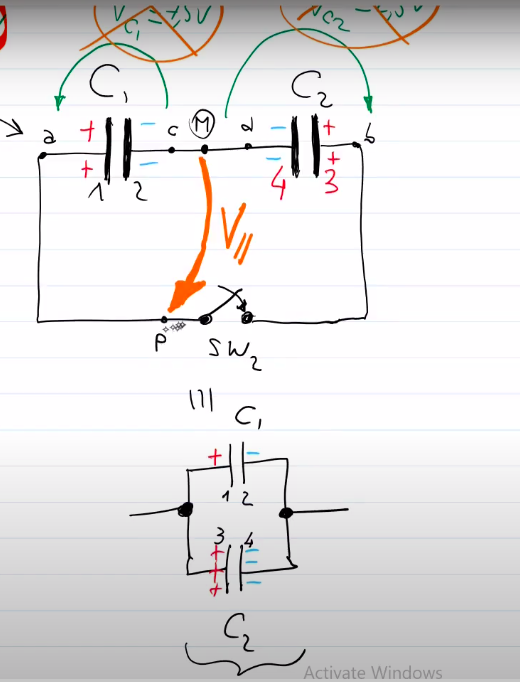 V_C1 = 7,5V V_C2 = 7,5V
C₁ C₂
a + − c M d − + b
+ − − +
1 2 4 3
V//
P SW₂
C₁
+ −
1 2
3 4
+ −
+ −
+ −
C₂
Activate Windows